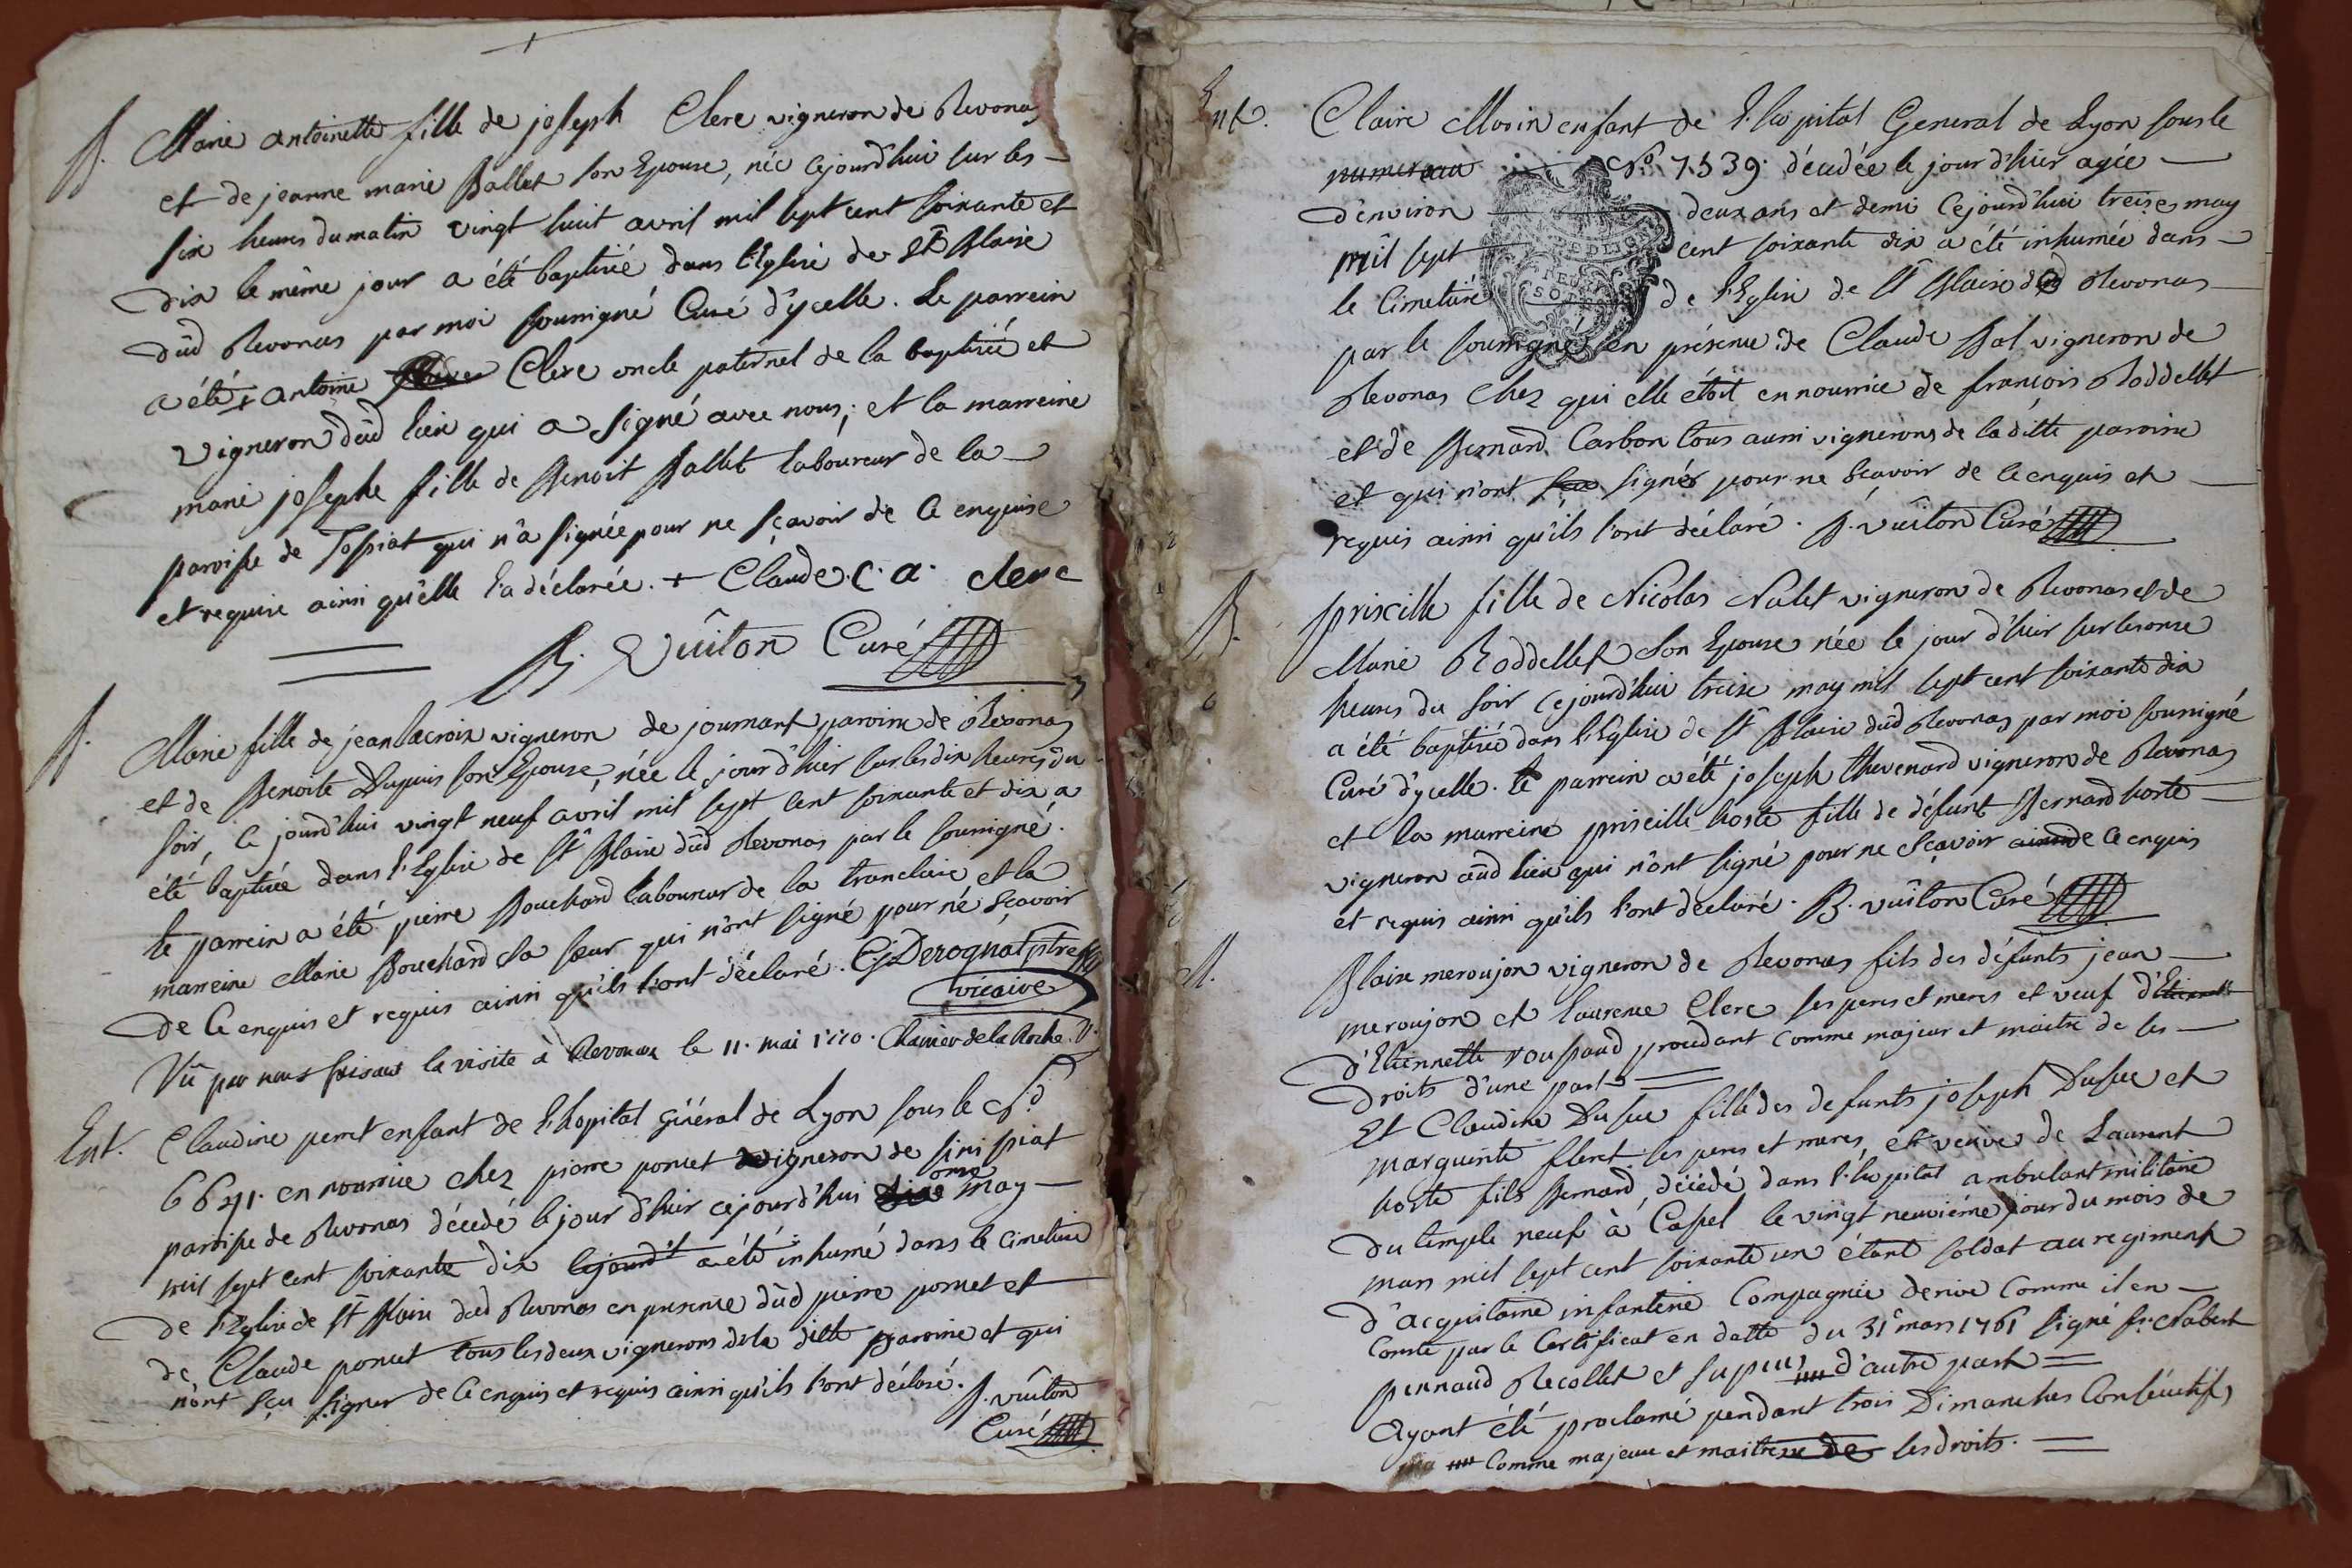 B. Marie antoinette fille de joseph Clere vigneron de Revonas
et de jeanne marie Ballet son Epouse, née cejourd'hui sur les
six heures du matin vingt huit avril mil sept cent soixante et
dix le même jour a été baptisée dans l'Eglise de St Blaise
dûd Revonas par moi soussigné Curé d'ycelle. Le parrein
a été + antoine Clere oncle paternel de la baptisée et
vigneron dûd lieu qui a signé avec nous; et la marreine
marie josephe fille de Benoit Ballet laboureur de la
paroisse de Tossiat qui n'a signée pour ne sçavoir de ce enquise
et requise ainsi qu'elle l'a déclarée. + Claude. C. a. clerc
B. Vuîton Curé
B. Marie fille de jean lacroix vigneron de journant paroisse de Revonas
et de Benoite Dupuis son Epouse, née le jour d'hier sur les dix heures du
soir, ce jourd'hui vingt neuf avril mil sept cent soixante et dix a
été baptisée dans l'Eglise de St Blaise dûd Revonas par le soussigné.
le parrein a été pierre Bouchard laboureur de la tranclaire et la
marreine Marie Bouchard sa sœur qui n'ont signé pour ne sçavoir
de ce enquis et requis ainsi qu'ils l'ont déclaré. C.J. Derognat ptre
vicaire
Vû par nous faisant la visite à Revonas le 11. mai 1770. Chanier de la Roche. V.
Ent. Claudine perret enfant de l'hopital général de Lyon sous le No
6641. en nourrice chez pierre poncet vigneron de sinissiat
paroisse de Revonas décedé le jour d'hier cejourd'hui onze may
mil sept cent soixante dix cejourd't a été inhumé dans le cimetiere
de l'Eglise de St Blaise dûd Revonas en presence dûd pierre poncet et
de Claude poncet tous les deux vignerons de la ditte paroisse et qui
n'ont sçu signer de ce enquis et requis ainsi qu'ils l'ont déclaré. B. vuîton
Curé
Ent. Claire Morin enfant de l'hopital General de Lyon sous le
numereau No. 7539. décedée le jour d'hier agée
d'environ deux ans et demi cejourd'hui treize may
mil sept cent soixante dix a été inhumée dans
le Cimetiere de l'Eglise de St Blaise dud Revonas
par le soussigné en présence de Claude Bal vigneron de
Revonas chez qui elle étoit en nourrice de françois Roddellet
et de Bernard Carbon tous aussi vignerons de la ditte paroisse
et qui n'ont signés pour ne sçavoir de ce enquis et
requis ainsi qu'ils l'ont déclaré. B. vuîton Curé
B. priscille fille de Nicolas Nalet vigneron de Revonas et de
Marie Roddellet son Epouse née le jour d'hier sur les onze
heures du soir cejourd'hui treize may mil sept cent soixante dix
a été baptisée dans l'Eglise de St Blaise dûd Revonas par moi soussigné
Curé d'ycelle. le parrein a été joseph thevenard vigneron de Revonas
et la marreine priscille hoste fille de défunt Bernard hoste
vigneron aûd lieu qui n'ont signé pour ne sçavoir de ce enquis
et requis ainsi qu'ils l'ont déclaré. B. vuîton Curé
M. Blaise meroujon vigneron de Revonas fils des défunts jean
meroujon et laurence Clere ses peres et meres et veuf
d'Etiennette roussaud procedant comme majeur et maitre de ses
droits d'une part
Et Claudine Dusuc fille des defunts joseph Dusuc et
marguerite fleret ses peres et meres, et veuve de Laurent
hoste fils Bernard, décédé dans l'hopital ambulant militaire
du temple neuf à Cassel le vingt neuvième jour du mois de
mars mil sept cent soixante un étant soldat au regiment
d'acquitaine infanterie Compagnie derive comme il en
conste par le Certificat en datte du 31e mars 1761 signé fr. Nabert
pennaud Recollet et supeur d'autre part
Ayant été proclamé pendant trois Dimanches Consécutifs
comme majeure et maitresse de ses droits.